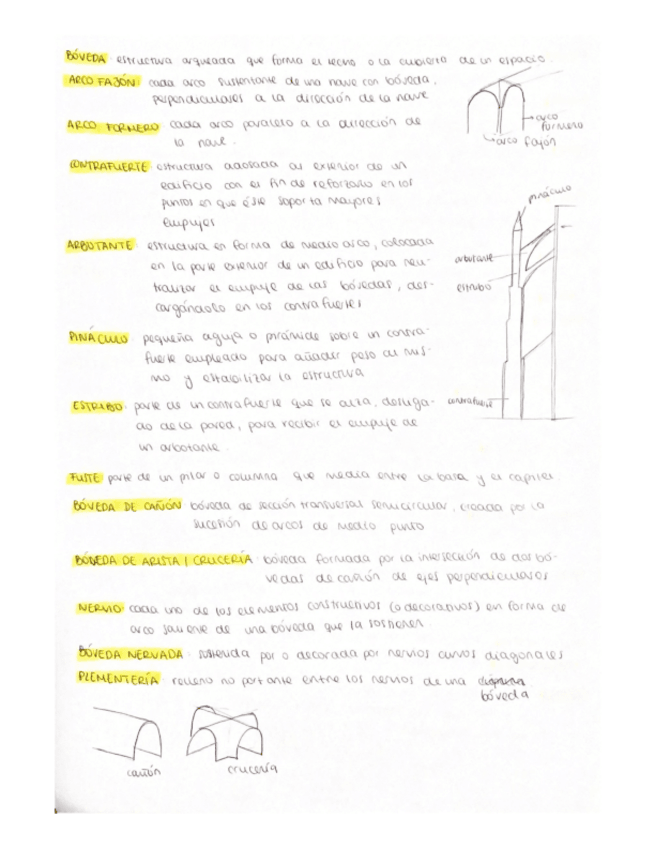 BÓVEDA estructura arqueada que forma el techo o la cubierta de un espacio.
ARCO FAJÓN: cada arco sustentante de una nave con bóveda,
perpendiculares a la dirección de la nave
ARCO FORMERO cada arco paralelo a la dirección de
la nave.
arco
formero
arco fajón
CONTRAFUERTE: estructura adosada al exterior de un
edificio con el fin de reforzarlo en los
puntos en que éste soporta mayores
empujes
pináculo
ARBOTANTE: estructura en forma de medio arco, colocada
en la parte exterior de un edificio para neu-
tralizar el empuje de las bóvedas, des-
cargándolo en los contrafuertes
arbotante
estribo
PINÁCULO pequeña aguja o pirámide sobre un contra-
fuerte empleado para añadir peso al mis-
mo y estabilizar la estructura
ESTRIBO: parte de un contrafuerte que se alza, desliga-
do de la pared, para recibir el empuje de
un arbotante.
contrafuerte
FUSTE parte de un pilar o columna que media entre la basa y el capitel
BÓVEDA DE CAÑÓN bóveda de sección transversal semicircular, creada por la
sucesión de arcos de medio punto
BÓVEDA DE ARISTA / CRUCERÍA bóveda formada por la intersección de dos bó-
vedas de cañón de ejes perpendiculares
NERVIO: cada uno de los elementos constructivos (o decorativos) en forma de
arco saliente de una bóveda que la sostienen
BÓVEDA NERVADA: sostenida por o decorada por nervios curvos diagonales
PLEMENTERÍA: relleno no portante entre los nervios de una
bóveda
cañón
crucería